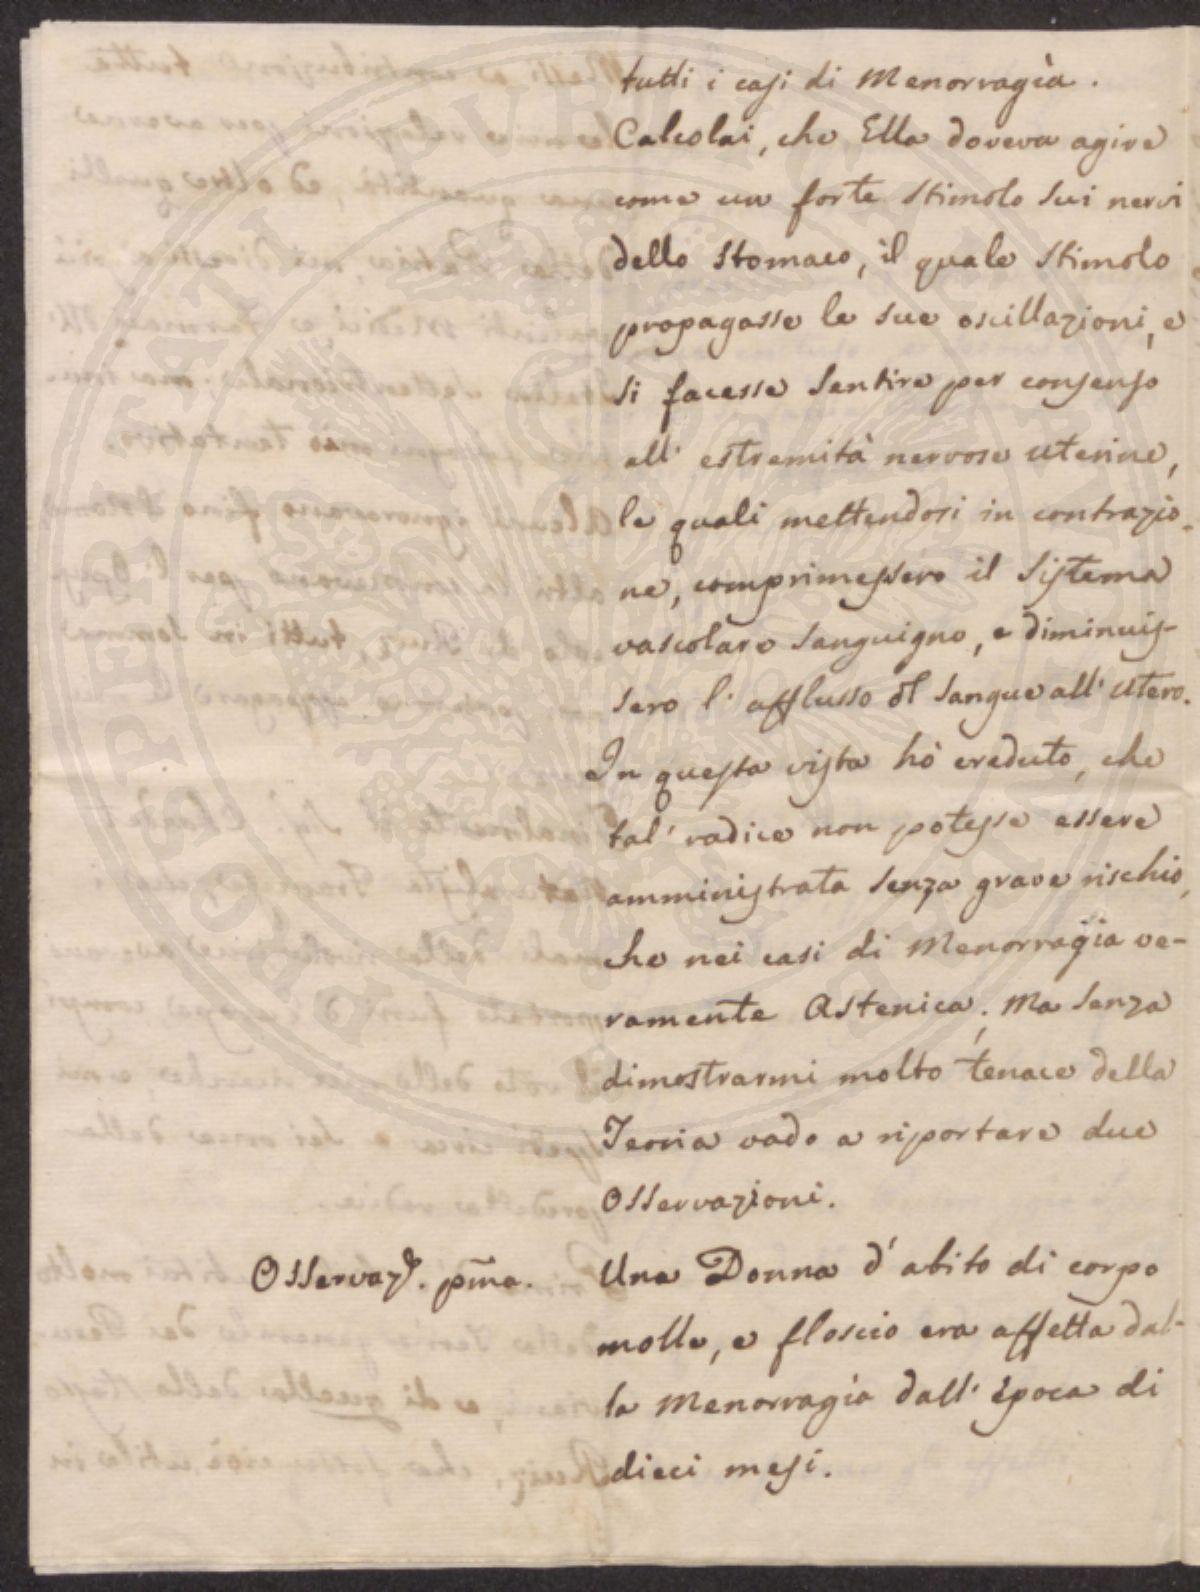 tutti i casi di Menorragìa.
Calcolai, che Ella doveva agire
come un forte stimolo sui nervi
dello stomaco, il quale stimolo
propagasse le sue oscillazioni, e
si facesse sentire per consenso
all' estremità nervose uterine,
le quali mettendosi in contrazio-
ne, comprimessero il sistema
vascolare sanguigno, e diminuis-
sero l' afflusso dl sangue all' utero.
In questa vista hò creduto, che
tal' radice non potesse essere
amministrata senza grave rischio,
che nei casi di Menorragìa ve-
ramente Astenica; Ma senza
dimostrarmi molto tenace della
Teoria vado a riportare due
Osservazioni.
Osservaz.e pma.
Una Donna d' abito di corpo
molle, e floscio era affetta dal-
la Menorragìa dall' època di
dieci mesi.